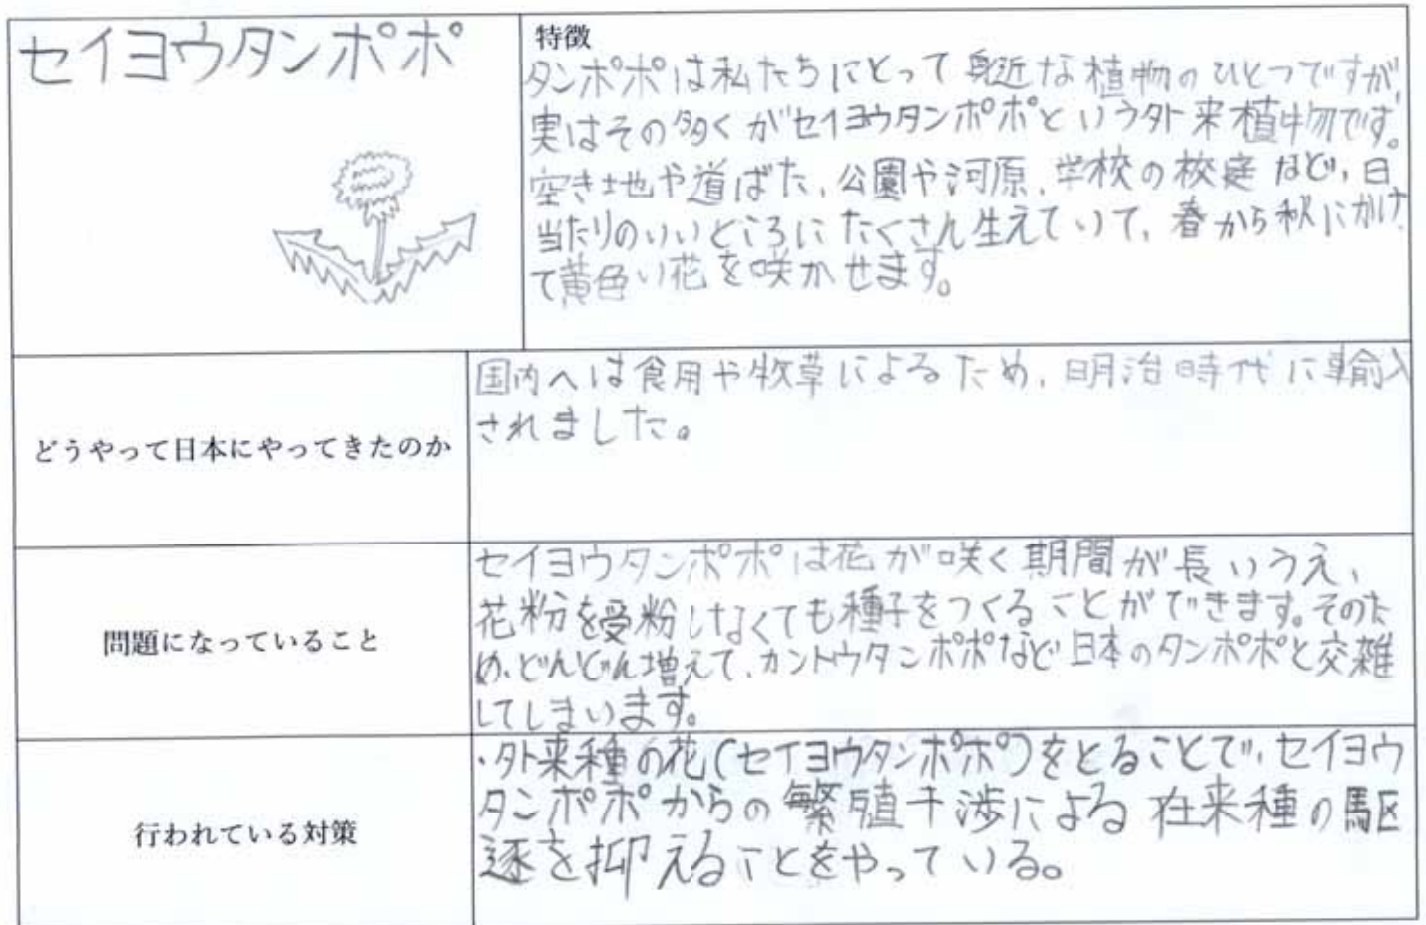 セイヨウタンポポ
特徴
タンポポは私たちにとって身近な植物のひとつですが、
実はその多くがセイヨウタンポポという外来植物です。
空き地や道ばた、公園や河原、学校の校庭など、日
当たりのいいところにたくさん生えていて、春から秋にかけ
て黄色い花を咲かせます。
どうやって日本にやってきたのか
国内へは食用や牧草によるため、明治時代に輸入
されました。
問題になっていること
セイヨウタンポポは花が咲く期間が長いうえ、
花粉を受粉しなくても種子をつくることができます。そのた
め、どんどん増えて、カントウタンポポなど日本のタンポポと交雑
してしまいます。
行われている対策
・外来種の花(セイヨウタンポポ)をとることで、セイヨウ
タンポポからの繁殖干渉による在来種の駆
逐を抑えることをやっている。